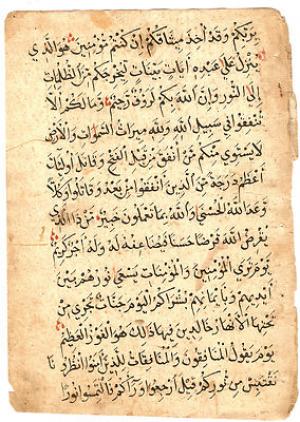 بربكم وقد أخذ ميثاقكم إن كنتم مؤمنين هو الذي
ينزل على عبده آيات بينات ليخرجكم من الظلمات
إلى النور وإن الله بكم لرؤف رحيم وما لكم ألا
تنفقوا في سبيل الله ولله ميراث السموات والأرض
لا يستوي منكم من أنفق من قبل الفتح وقاتل أولئك
أعظم درجة من الذين أنفقوا من بعد وقاتلوا وكلا
وعد الله الحسنى والله بما تعملون خبير من ذا الذي
يقرض الله قرضا حسنا فيضاعفه له وله أجر كريم
يوم ترى المؤمنين والمؤمنات يسعى نورهم بين
أيديهم وبأيمانهم بشراكم اليوم جنات تجري من
تحتها الأنهار خالدين فيها ذلك هو الفوز العظيم
يوم يقول المنافقون والمنافقات للذين آمنوا انظرونا
نقتبس من نوركم قيل ارجعوا وراءكم فالتمسوا نورا